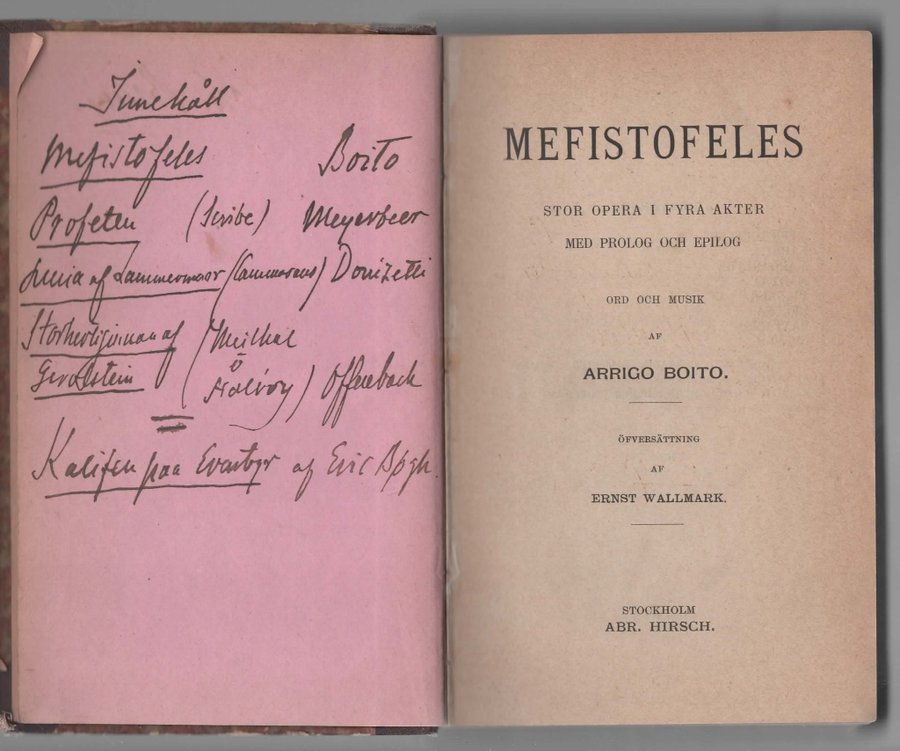 Innehåll
Mefistofeles Boito
Profeten (Scribe) Meyerbeer
Lucia af Lammermoor (Cammarano) Donizetti
Storhertiginnan af (Meilhac
Gerolstein o Halévy) Offenbach
Kalifen paa Eventyr af Eric Bøgh.
MEFISTOFELES
STOR OPERA I FYRA AKTER
MED PROLOG OCH EPILOG
ORD OCH MUSIK
AF
ARRIGO BOITO.
ÖFVERSÄTTNING
AF
ERNST WALLMARK.
STOCKHOLM
ABR. HIRSCH.